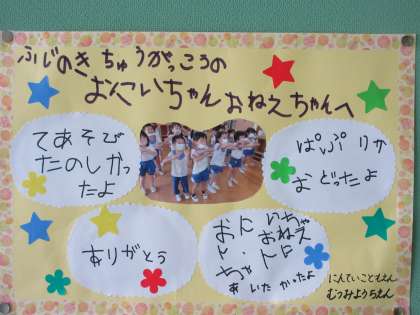 ふじのき ちゅうがっこうの
おにいちゃん おねえちゃんへ
てあそび
たのしかっ
たよ
ぱぷりか
おどったよ
ありがとう
おにいちゃ
と、おねえ
ちゃんに
あいたかったよ
にんていこどもえん
むつみようちえん